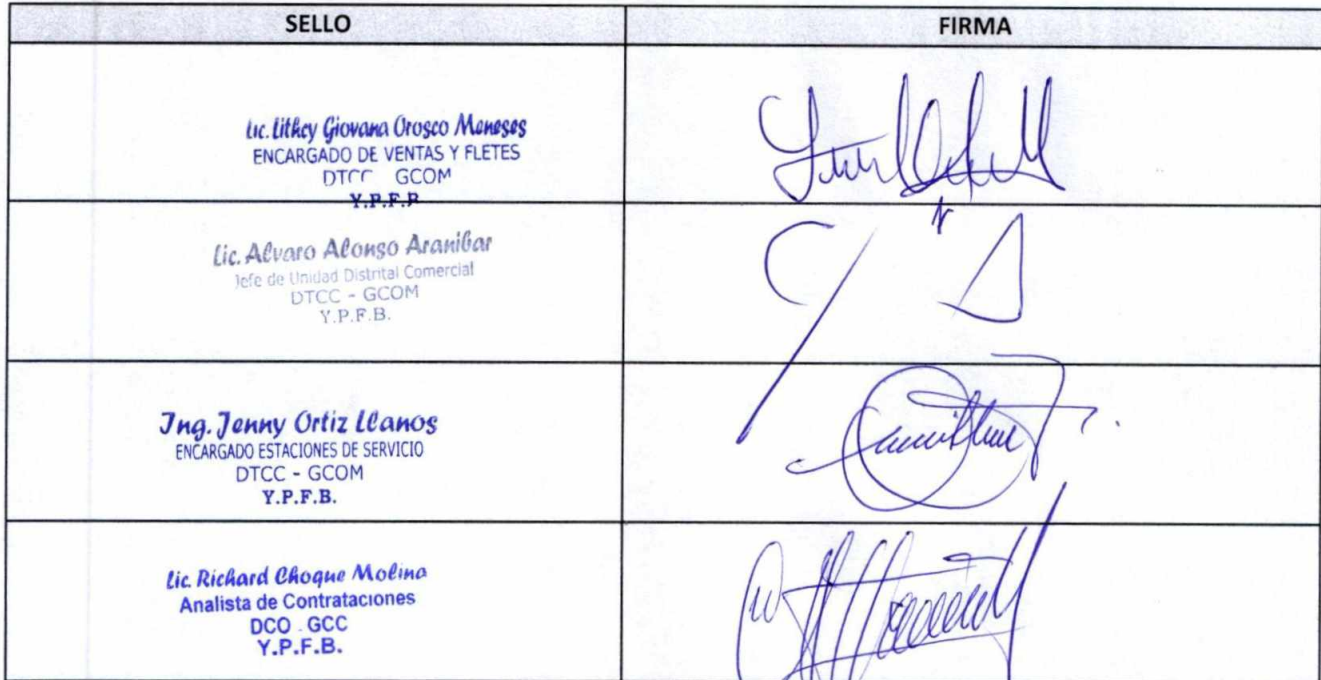 SELLO FIRMA
Lic. Lithcy Giovana Orosco Meneses
ENCARGADO DE VENTAS Y FLETES
DTCC GCOM
Y.P.F.B
Lic. Alvaro Alonso Aranibar
Jefe de Unidad Distrital Comercial
DTCC - GCOM
Y.P.F.B.
Ing. Jenny Ortiz Llanos
ENCARGADO ESTACIONES DE SERVICIO
DTCC - GCOM
Y.P.F.B.
Lic. Richard Choque Molina
Analista de Contrataciones
DCO . GCC
Y.P.F.B.